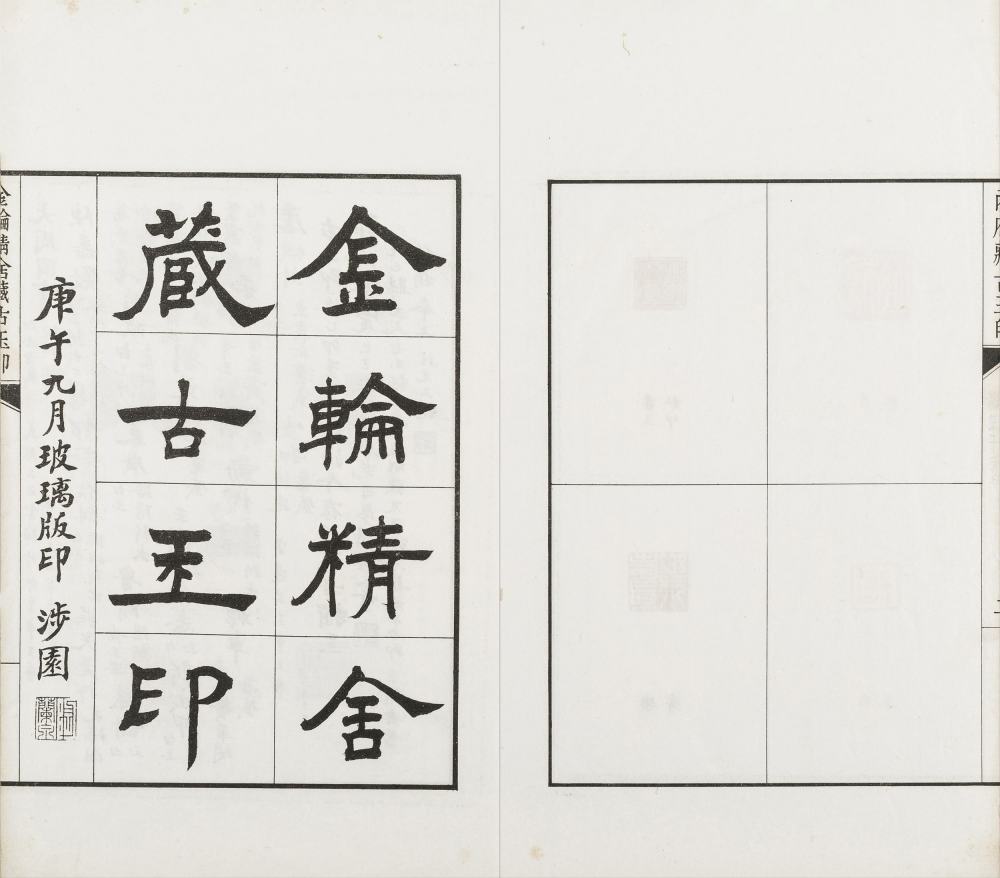 金輪精舍
藏古玉印
庚午九月玻璃版印 涉園
蘭泉
金輪精舍藏古玉印